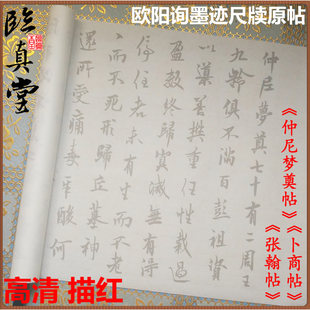 欧阳询墨迹尺牍原帖
臨真堂
仲尼夢奠七十有二周王
九齡俱不滿百彭祖資
以導養樊重任性裁過
盈數終歸冥滅無有得
停住者未有生而不老
〻而不死形歸丘墓神
還所受痛毒辛酸何
《仲尼梦奠帖》
《卜商帖》
《张翰帖》
高清 描红